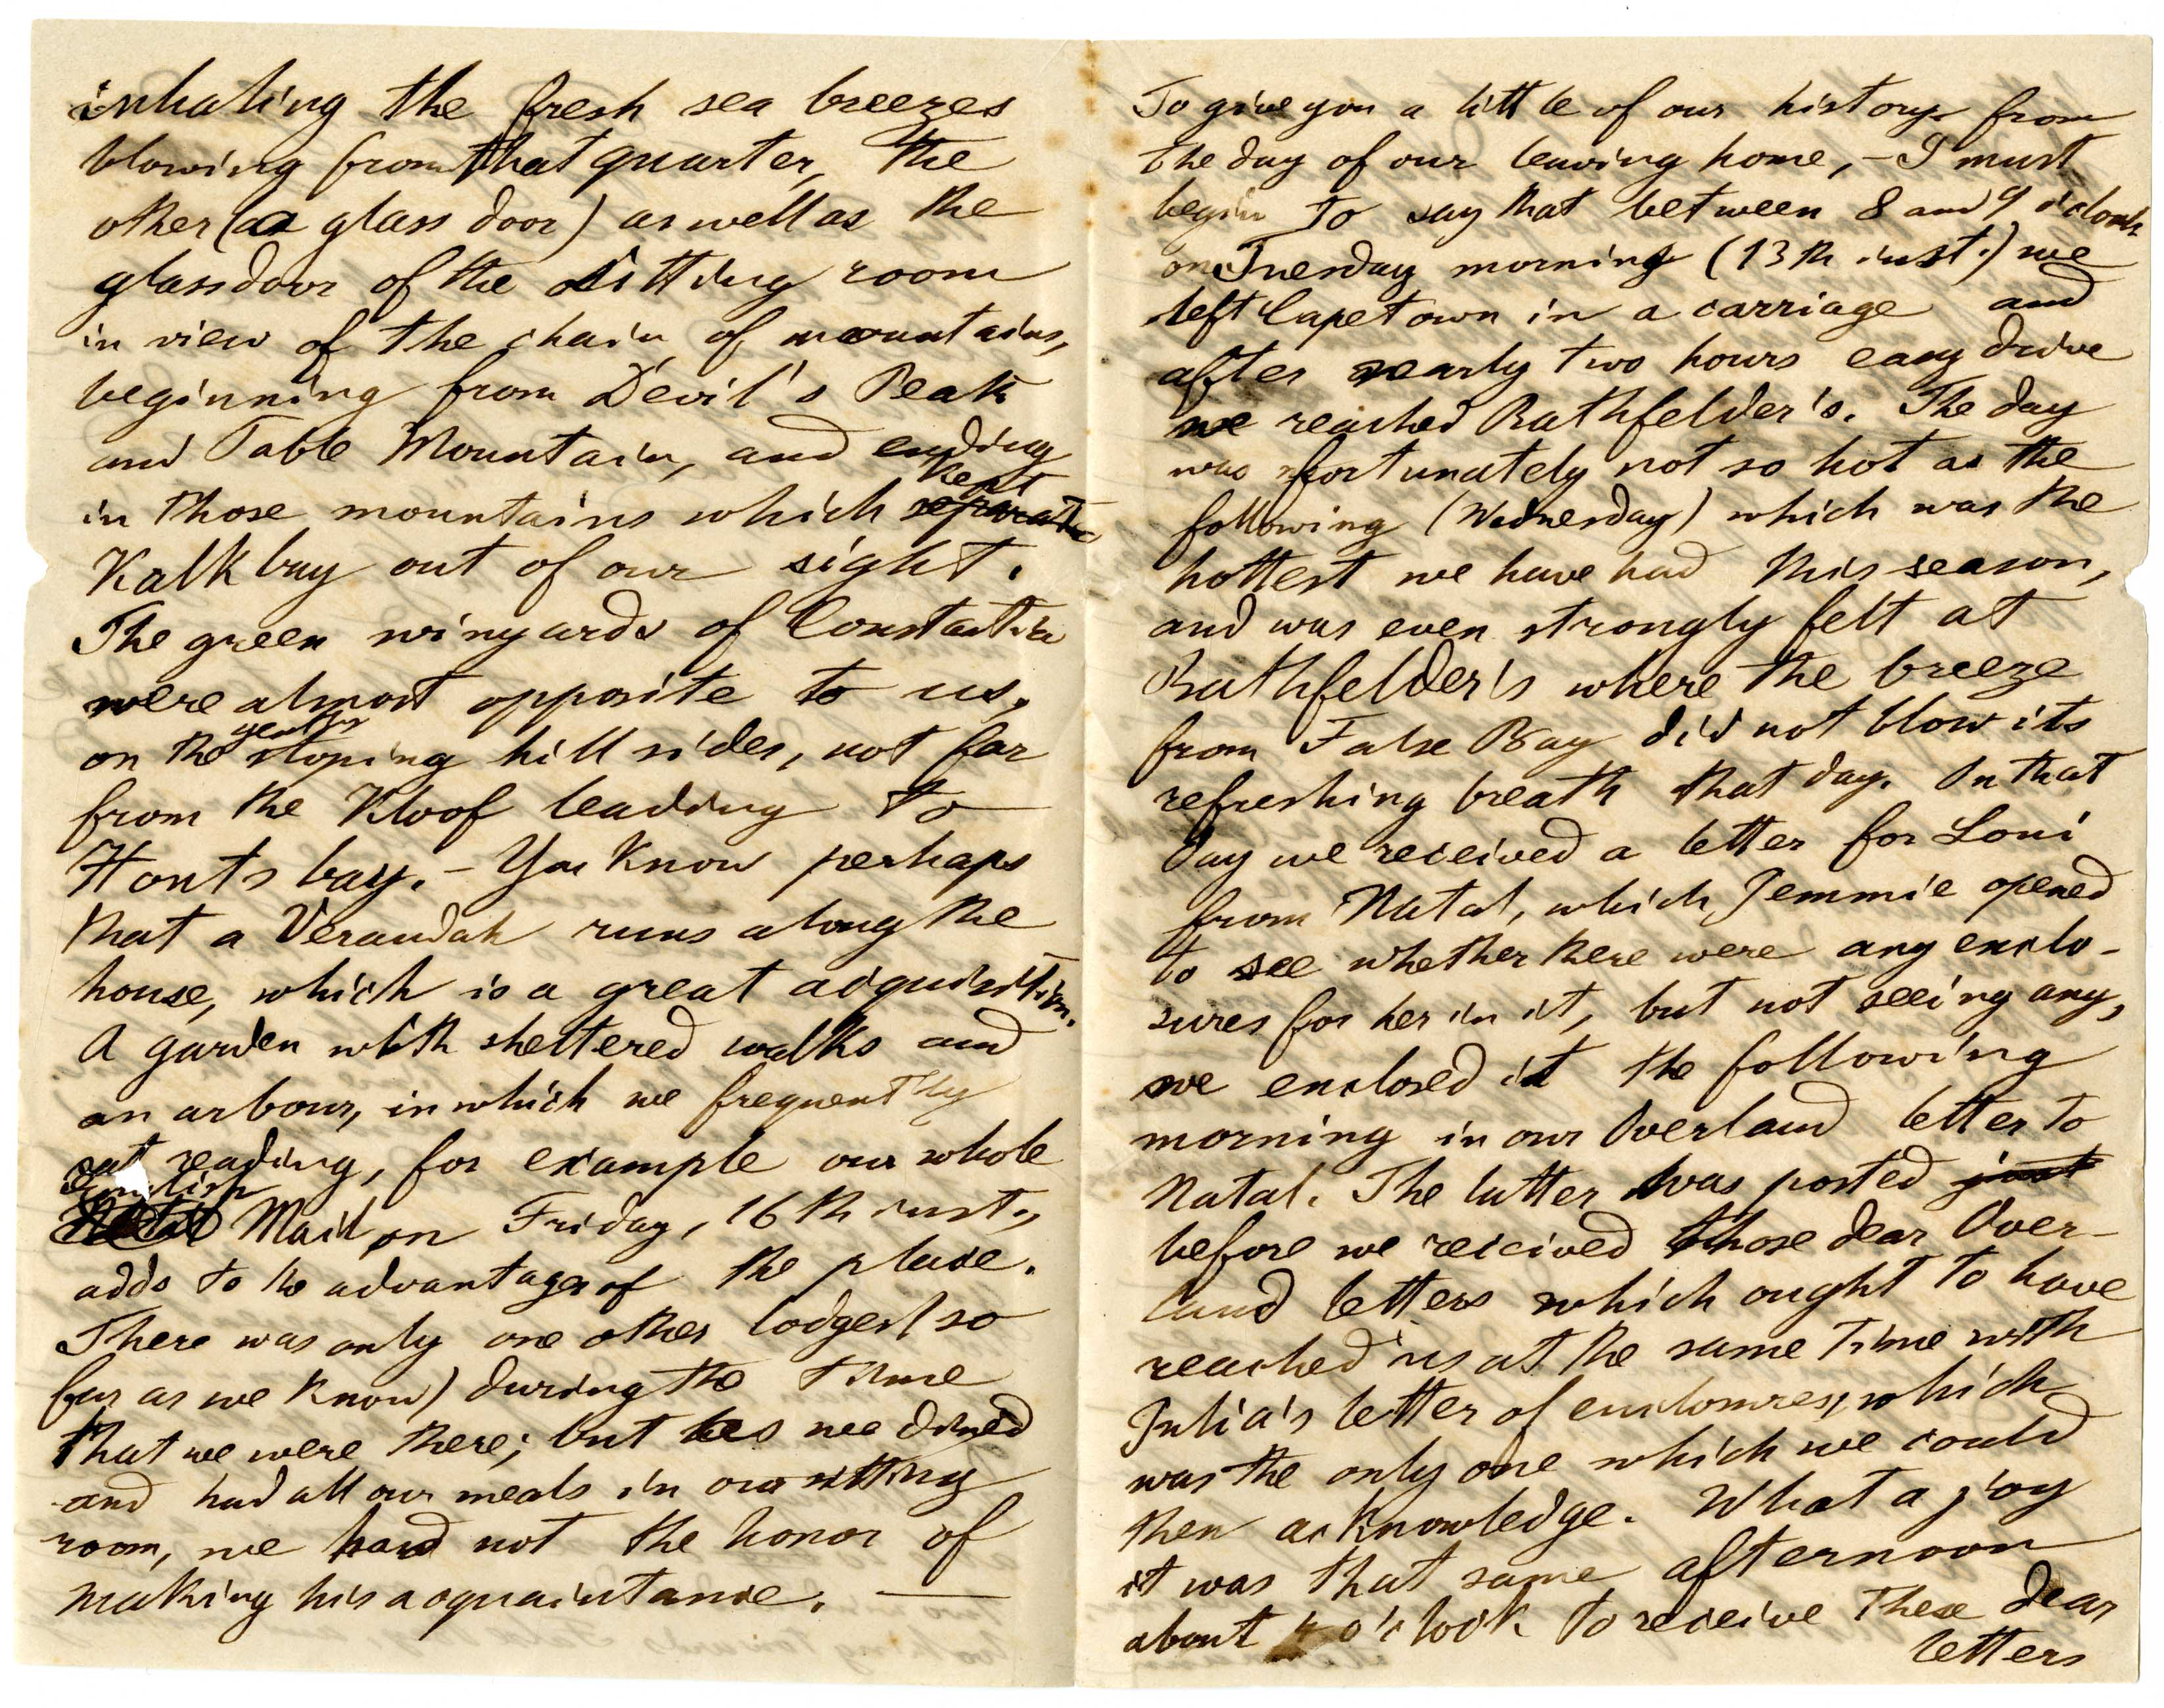 inhaling the fresh sea breezes
blowing from that quarter, the
other (a glass door) as well as the
glassdoor of the sitting room
in view of the chain of mountains,
beginning from Devil's Peak
and Table Mountain, and ending
kept
in those mountains which separate
Kalkbay out of our sight.
The green winyards of Constantia
were almost opposite to us,
gently
on the sloping hill sides, not far
from the Kloof leading to
Houts bay. – You know perhaps
that a Verandah runs along the
house, which is a great adquisition.
A garden with sheltered walks and
an arbour, in which we frequently
sat reading, for example our whole
English
Natal Mail on Friday, 16th inst.,
adds to the advantages of the place.
There was only one other lodger (so
far as we know) during the time
that we were there; but as we dined
and had all our meals in our sitting
room, we had not the honor of
making his acquaintance. —
To give you a little of our history from
the day of our leaving home, – I must
begin to say that between 8 and 9 o'clock
on Tuesday morning (13th inst.) we
left Capetown in a carriage and
after nearly two hours easy drive
we reached Rathfelder's. The day
was fortunately not so hot as the
following (Wednesday) which was the
hottest we have had this season,
and was even strongly felt at
Rathfelder's where the breeze
from False Bay did not blow its
refreshing breath that day. On that
day we received a letter for Loni
from Natal, which Jemmie opened
to see whether there were any enclo-
sures for her in it, but not seeing any,
we enclosed it the following
morning in our Overland letter to
Natal. The latter was posted just
before we received those dear Over-
land letters which ought to have
reached us at the same time with
Julia's letter of enclosures, which
was the only one which we could
then acknowledge. What a joy
it was that same afternoon
about 4 o'clock to receive these dear
letters